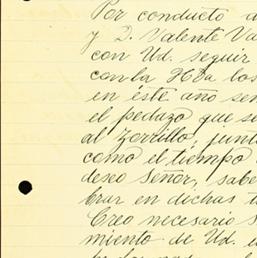 Por conducto d
y D. Valente Va
con Ud. seguir
con la Hda los
en éste año sen
el pedazo que si
al Zorrillo, junt
como el tiempo
deseo Señor, sabe
brar en dichas t
Creo necesario s
miento de Ud. e